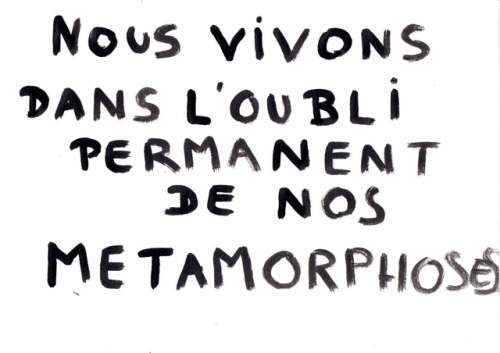 NOUS ViVONS
DANS L'OUBLi
PERMANENT
DE NOS
METAMORPHOSES